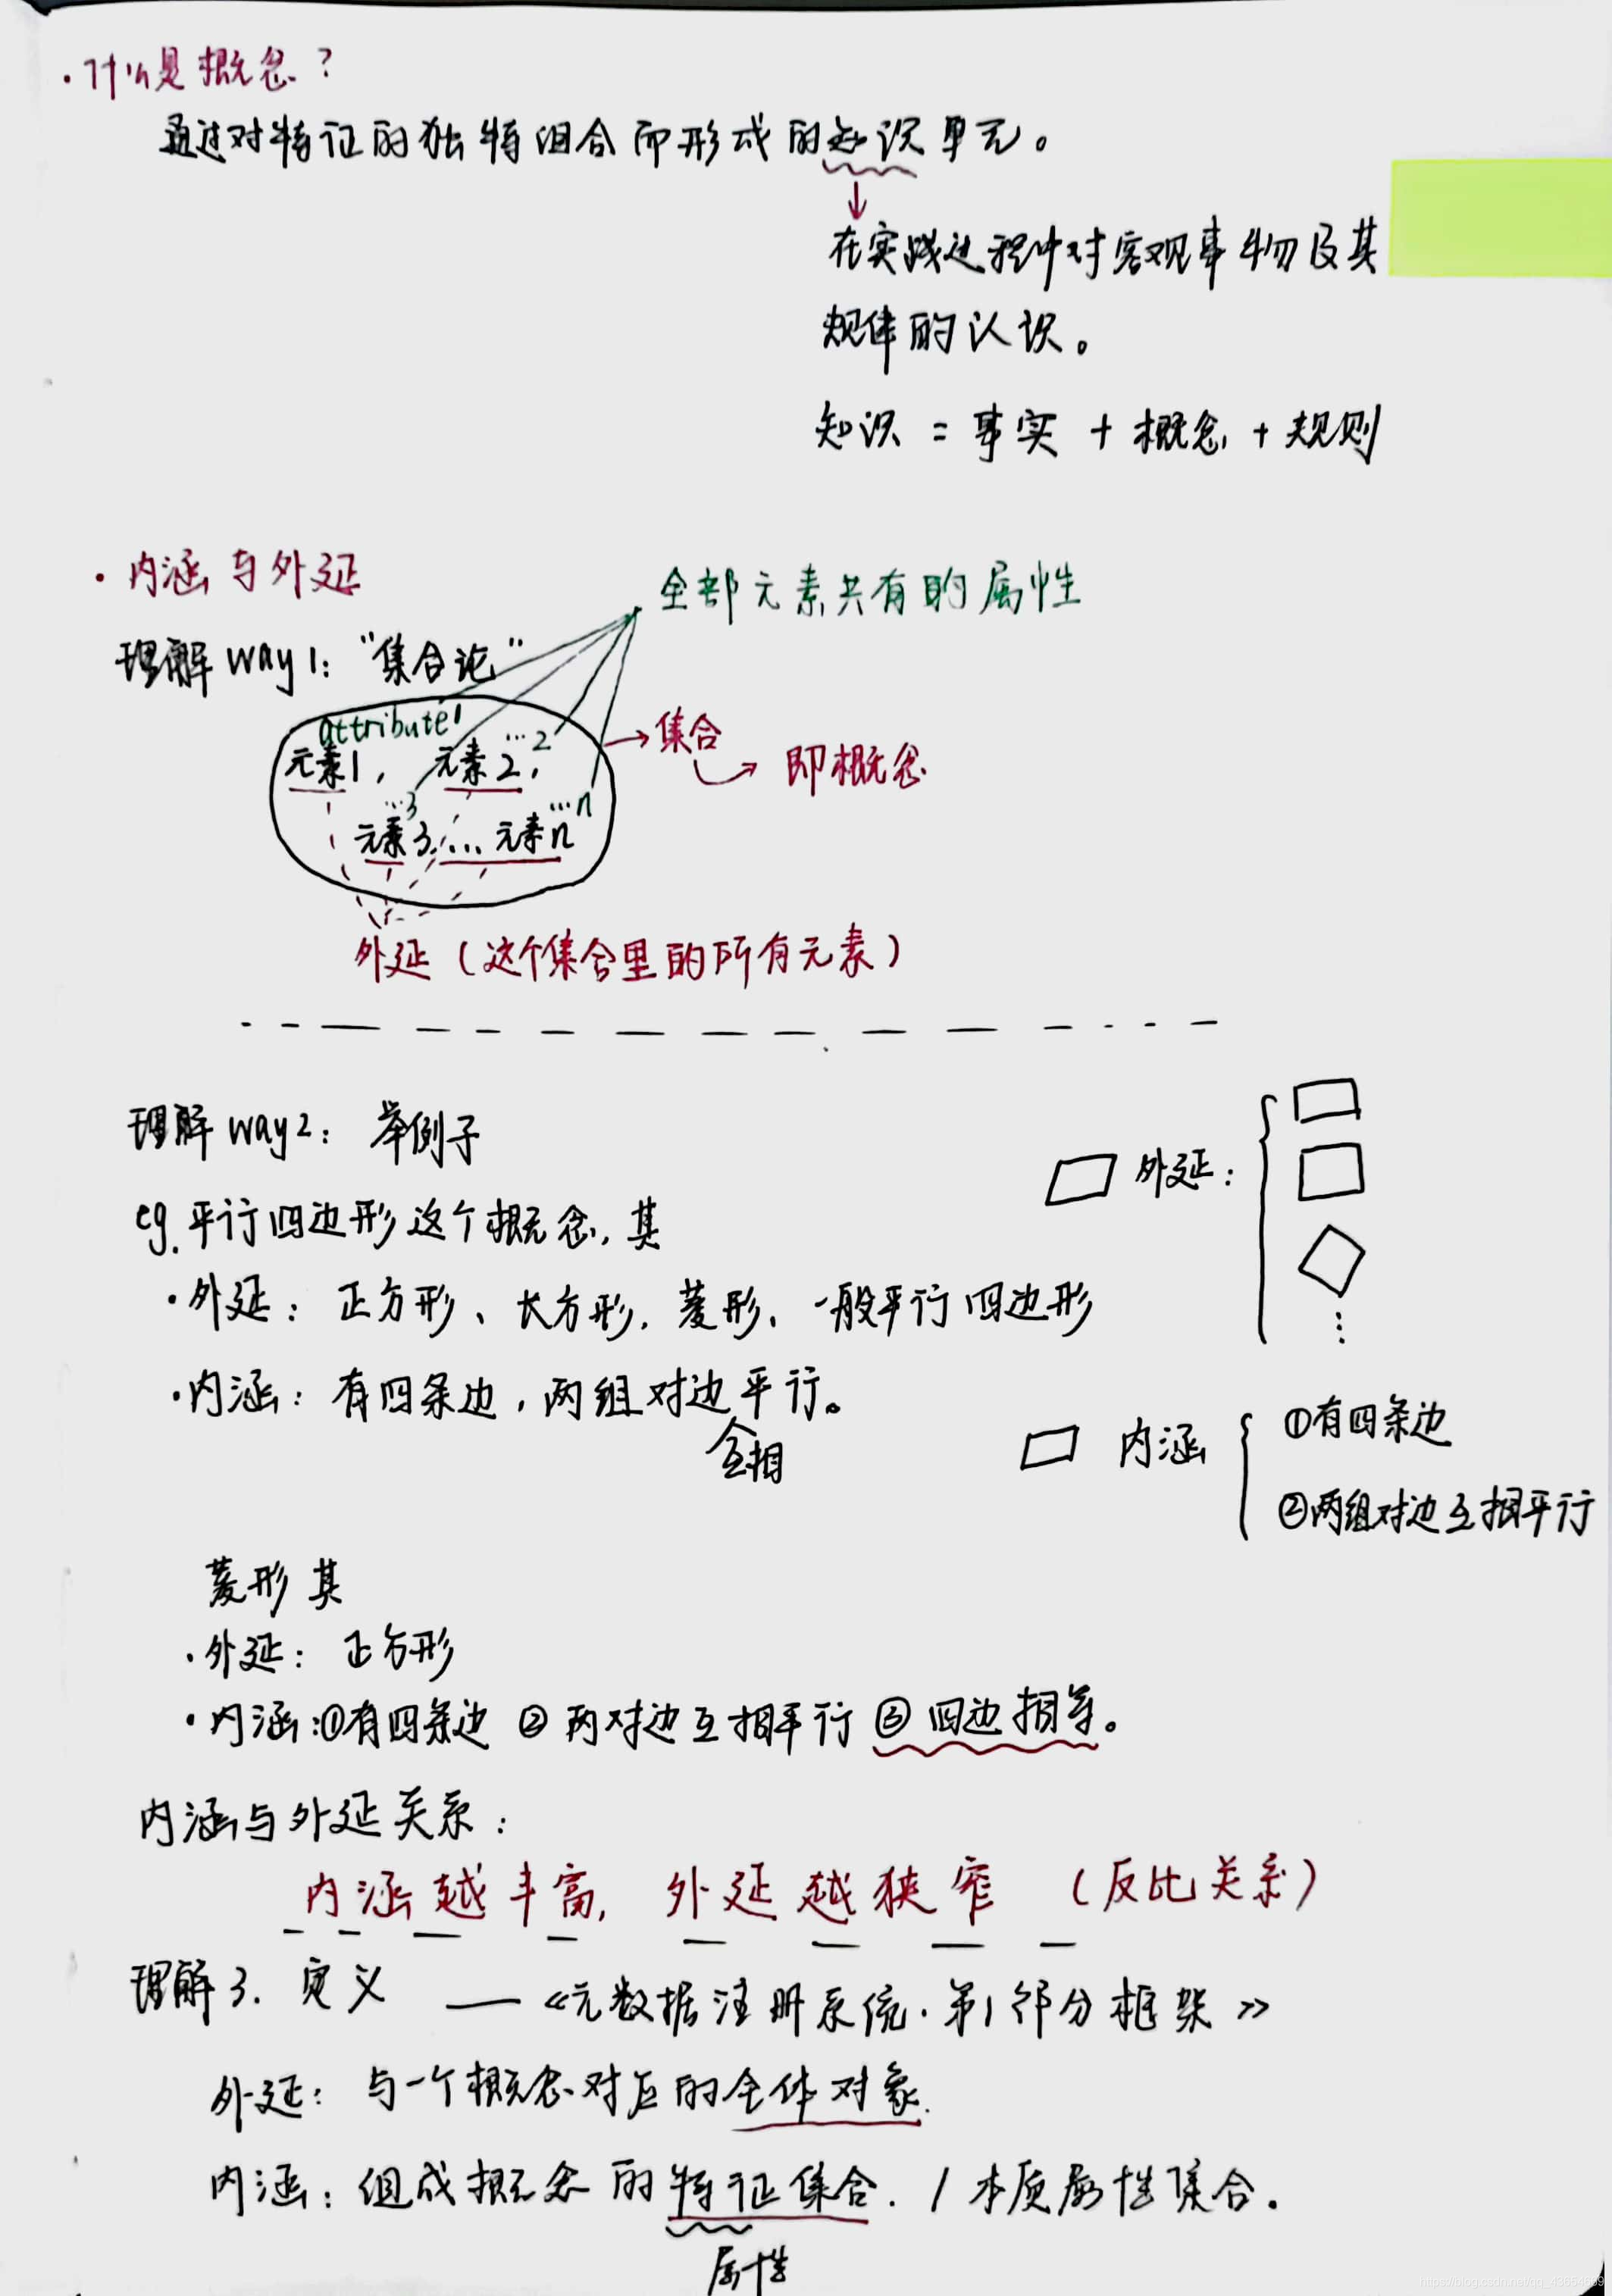 ·什么是概念？
通过对特征的独特组合而形成的知识单元。
在实践过程中对客观事物及其
规律的认识。
知识 = 事实 + 概念 + 规则
·内涵与外延
全部元素共有的属性
理解way1："集合论"
attribute1
元素1， 元素2， …2
…3 …n
元素3 … 元素n
集合
即概念
外延（这个集合里的所有元素）
理解way2：举例子
eg.平行四边形这个概念，其
·外延：正方形、长方形，菱形、一般平行四边形
·内涵：有四条边，两组对边平行。
互相
外延：
⋮
内涵
①有四条边
②两组对边互相平行
菱形其
·外延：正方形
·内涵:①有四条边 ②两对边互相平行 ③四边相等。
内涵与外延关系：
内涵越丰富，外延越狭窄 （反比关系）
理解3.定义 ——《元数据注册系统·第1部分框架》
外延：与一个概念对应的全体对象.
内涵：组成概念的特征集合. / 本质属性集合.
属性